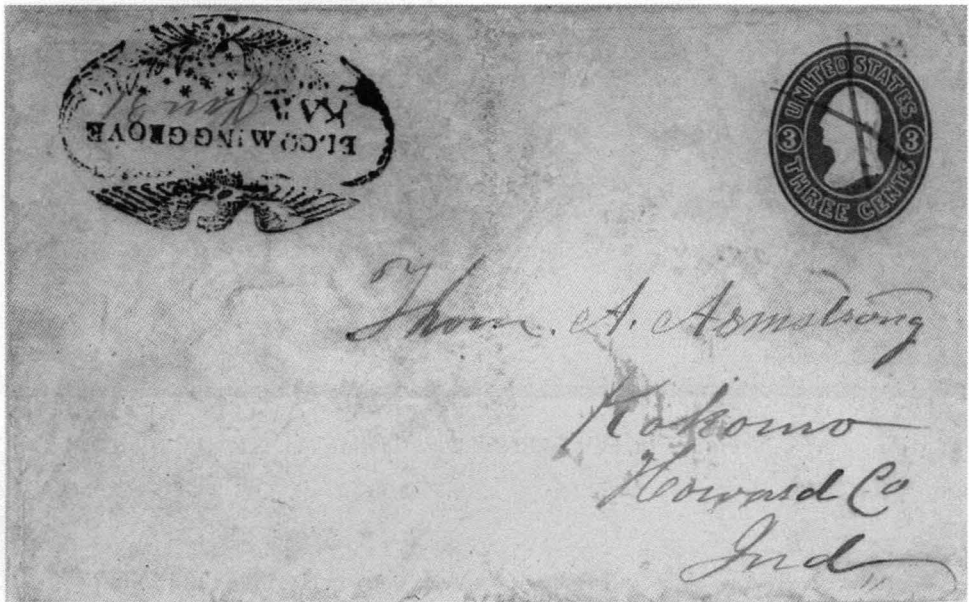 ELCOMING GROVE
KAN
UNITED STATES
3 3
THREE CENTS
Thom. A. Armstrong
Kokomo
Howard Co
Ind